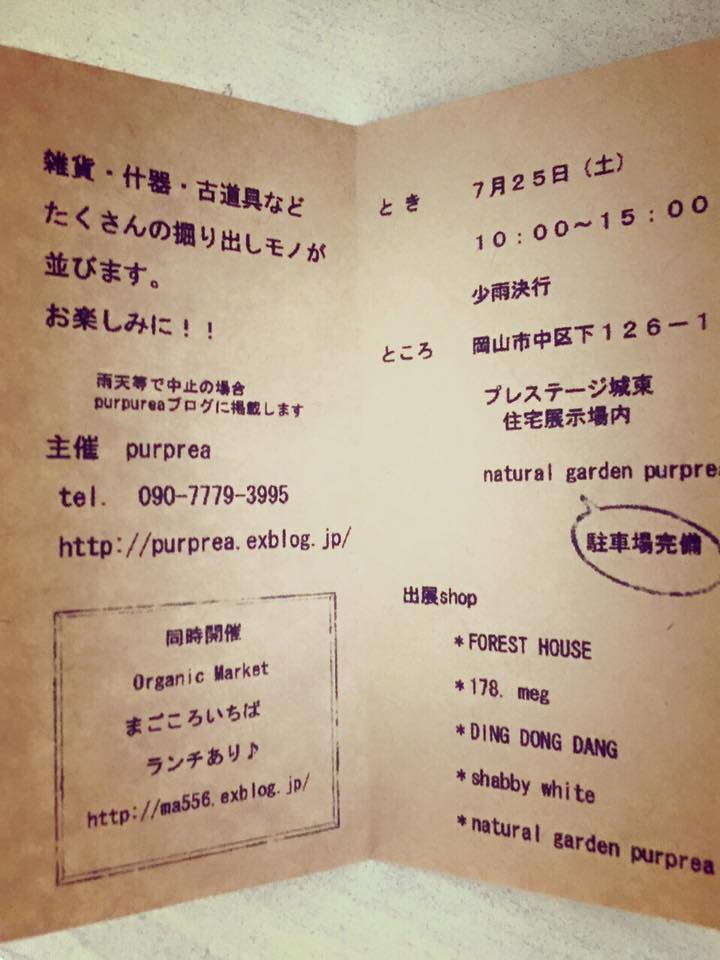 雑貨・什器・古道具など
たくさんの掘り出しモノが
並びます。
お楽しみに！！
雨天等で中止の場合
purpureaブログに掲載します
主催 purprea
tel. 090-7779-3995
http://purprea.exblog.jp/
同時開催
Organic Market
まごころいちば
ランチあり♪
http://ma556.exblog.jp/
とき ７月２５日（土）
１０：００～１５：００
少雨決行
ところ 岡山市中区下１２６－１
プレステージ城東
住宅展示場内
natural garden purprea
駐車場完備
出展shop
＊FOREST HOUSE
＊178. meg
＊DING DONG DANG
＊shabby white
＊natural garden purprea